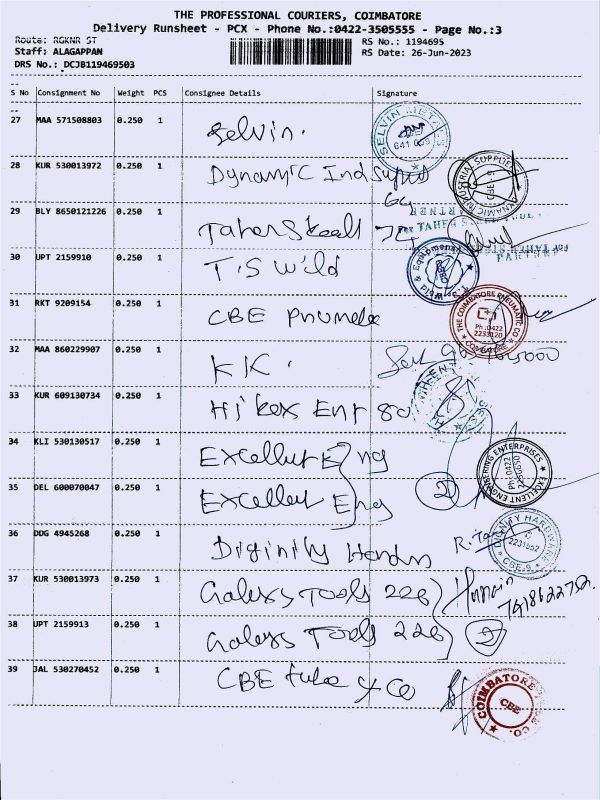 THE PROFESSIONAL COURIERS, COIMBATORE
Delivery Runsheet - PCX - Phone No.:0422-3505555 - Page No.:3
Route: RGKNR ST
RS No.: 1194695
Staff: ALAGAPPAN
RS Date: 26-Jun-2023
DRS No.: DCJB119469503
S No Consignment No Weight PCS Consignee Details Signature
27 MAA 571508803 0.250 1 Selvin.
SELVIN METALS
28 KUR 530013972 0.250 1 Dynamic Ind
CBE-9
29 BLY 8650121226 0.250 1
PARTNER
30 UPT 2159910 0.250 1 T.S Wild
& Equipments
31 RKT 9209154 0.250 1 CBE
THE COIMBATORE PNEUMATIC CO
Ph:0422
2233120
COIMBATORE
32 MAA 860229907 0.250 1 KK.
33 KUR 609130734 0.250 1 Hikes Ent 80
34 KLI 530130517 0.250 1 Excellent Eng
EXCELLENT ENGINEERING ENTERPRISES
Ph:0422
35 DEL 600070047 0.250 1 Excellent Eng 2
36 DDG 4945268 0.250 1
DIGNITY HARDWARE
2231552
CBE-9
37 KUR 530013973 0.250 1 Galaxy Tools 226
38 UPT 2159913 0.250 1 Galaxy Tools 226 2
39 JAL 530270452 0.250 1 CBE tube & Co
COIMBATORE TUBE CO.
CBE